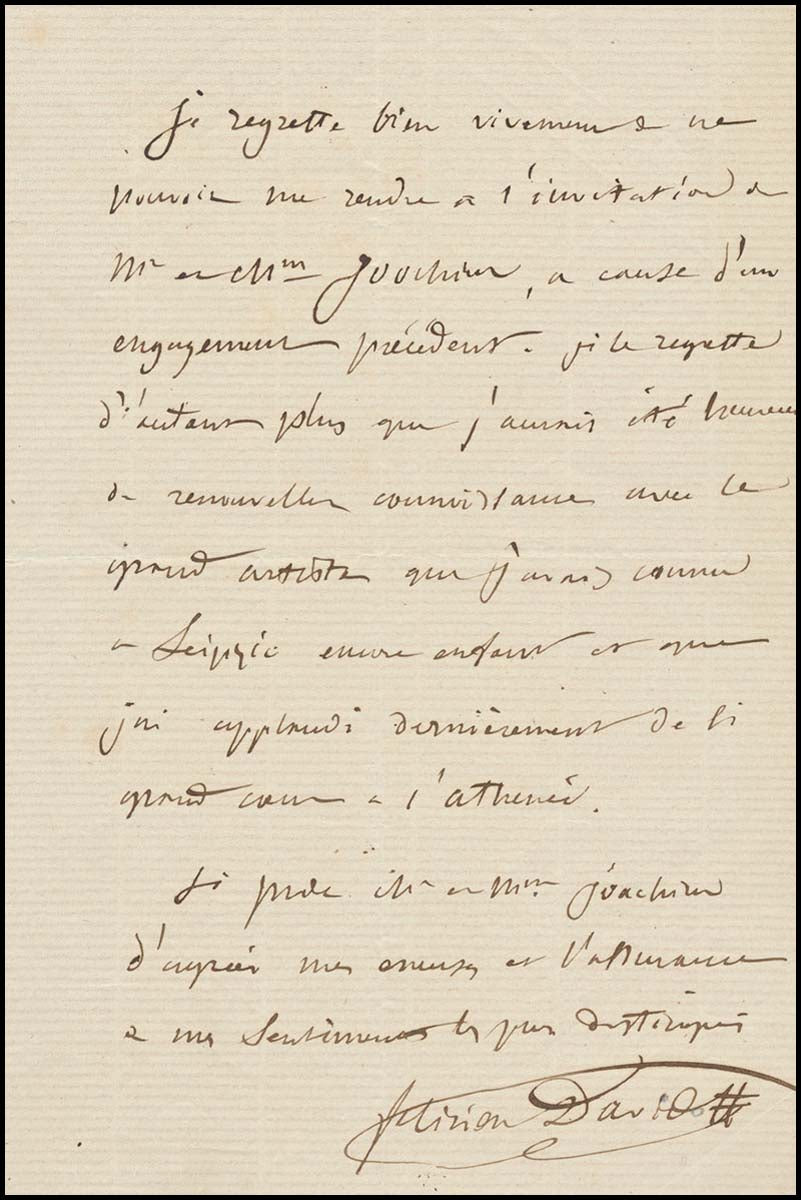 Je regrette bien vivement de ne
pouvoir me rendre a l'invitation de
Mr et Mme Joachim, a cause d'un
engagement précédent. je le regrette
d'autant plus que j'aurais été heureux
de renouveller connaissance avec le
grand artiste que j'avais connu
a Leipzic encore enfant et que
j'ai applaudi dernièrement de si
grand coeur a l'athenée.
Je prie Mr et Mme Joachim
d'agréer mes excuses et l'assurance
de mes sentiments les plus distingués
Félicien David